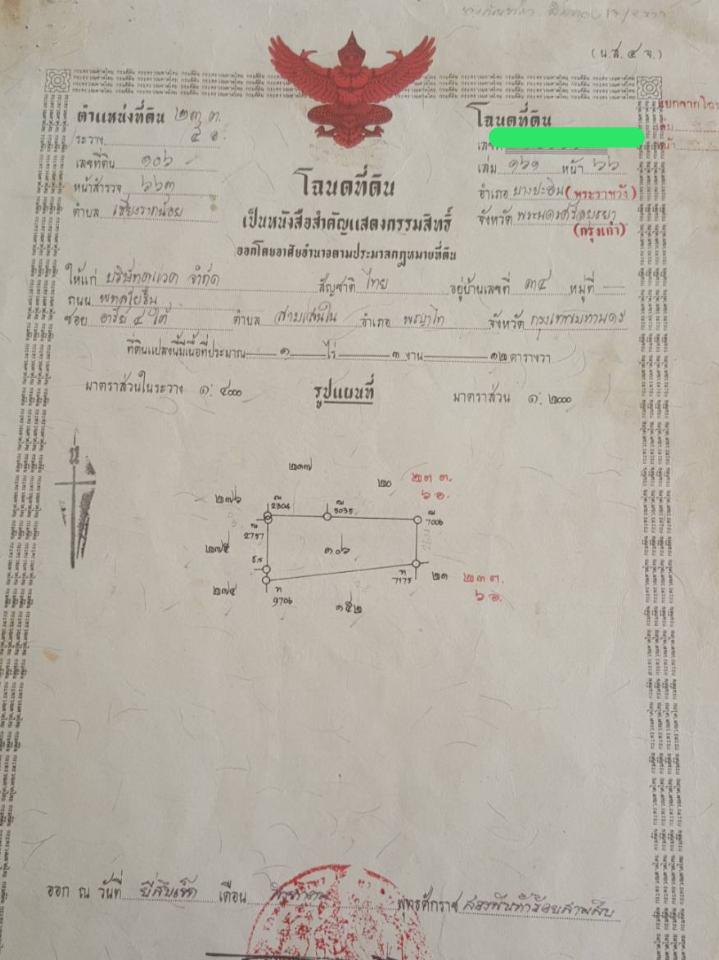 (น.ส. ๔ จ.)
ตำแหน่งที่ดิน ๒๓ ต.
ระวาง ๕ อ.
เลขที่ดิน ๑๐๖
หน้าสำรวจ ๖๖๓
ตำบล เชียงรากน้อย
โฉนดที่ดิน
เล่ม ๑๖๑ หน้า ๖๖
อำเภอ บางปะอิน (พระราชวัง)
จังหวัด พระนครศรีอยุธยา
(กรุงเก่า)
โฉนดที่ดิน
เป็นหนังสือสำคัญแสดงกรรมสิทธิ์
ออกโดยอาศัยอำนาจตามประมวลกฎหมายที่ดิน
ให้แก่ บริษัท จำกัด สัญชาติ ไทย อยู่บ้านเลขที่ ๓๔ หมู่ที่
ถนน พหลโยธิน
ซอย อารีย์ ๔ ใต้ ตำบล สามเสนใน อำเภอ พญาไท จังหวัด กรุงเทพมหานคร
ที่ดินแปลงนี้มีเนื้อที่ประมาณ ๑ ไร่ ๑ งาน ๑๒ ตารางวา
มาตราส่วนในระวาง ๑ : ๔๐๐๐
รูปแผนที่
มาตราส่วน ๑ : ๒๐๐๐
น
๒๗๗
๒๐
๒๓ ต.
๖ อ.
๒๗๖
2304
5035
7006
2757
๑๐๖
๒๗๕
7175
๒๑
๒๓ ต.
๖ อ.
๒๗๔
9706
๑๕๒
ออก ณ วันที่ ยี่สิบเจ็ด เดือน พุทธศักราช สองพันห้าร้อยสามสิบ